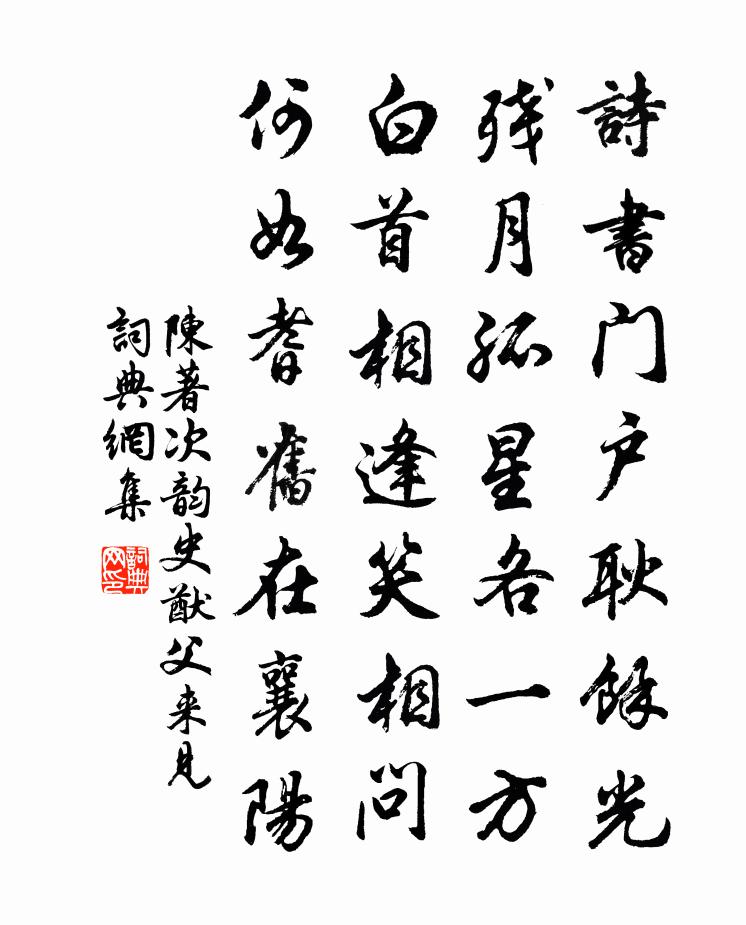 詩書门户耿餘光
残月孤星各一方
白首相逢笑相问
何如耆舊在襄陽
陳著次韵史猷父来见
詞典網集
詞典网印